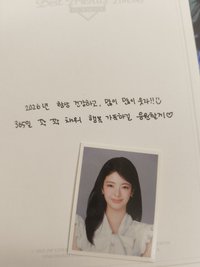 2026년 항상 건강하고, 많이 많이 웃자!!
365일 꽉 꽉 채워 행복 가득하길 응원할게♡